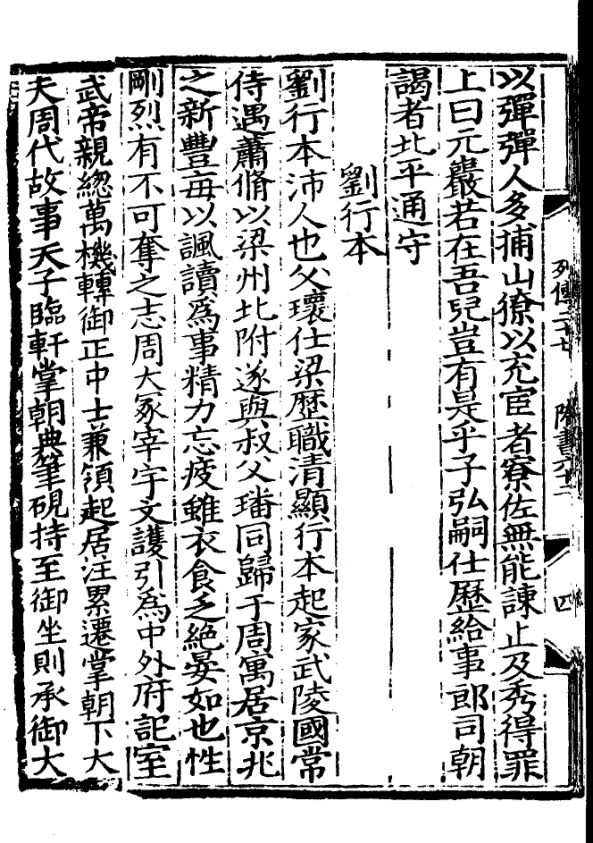 以彈彈人多捕山獠以充宦者寮佐無能諫止及秀得罪
上曰元巖若在吾兒豈有是乎子弘嗣仕歷給事郎司朝
謁者北平通守
劉行本
劉行本沛人也父瓌仕梁歷職清顯行本起家武陵國常
侍遇蕭脩以梁州北附遂與叔父璠同歸于周寓居京兆
之新豐每以諷讀爲事精力忘疲雖衣食乏絶晏如也性
剛烈有不可奪之志周大冢宰宇文護引爲中外府記室
武帝親總萬機轉御正中士兼領起居注累遷掌朝下大
夫周代故事天子臨軒掌朝典筆硯持至御坐則承御大
列傳二十七 隋書六十二 四